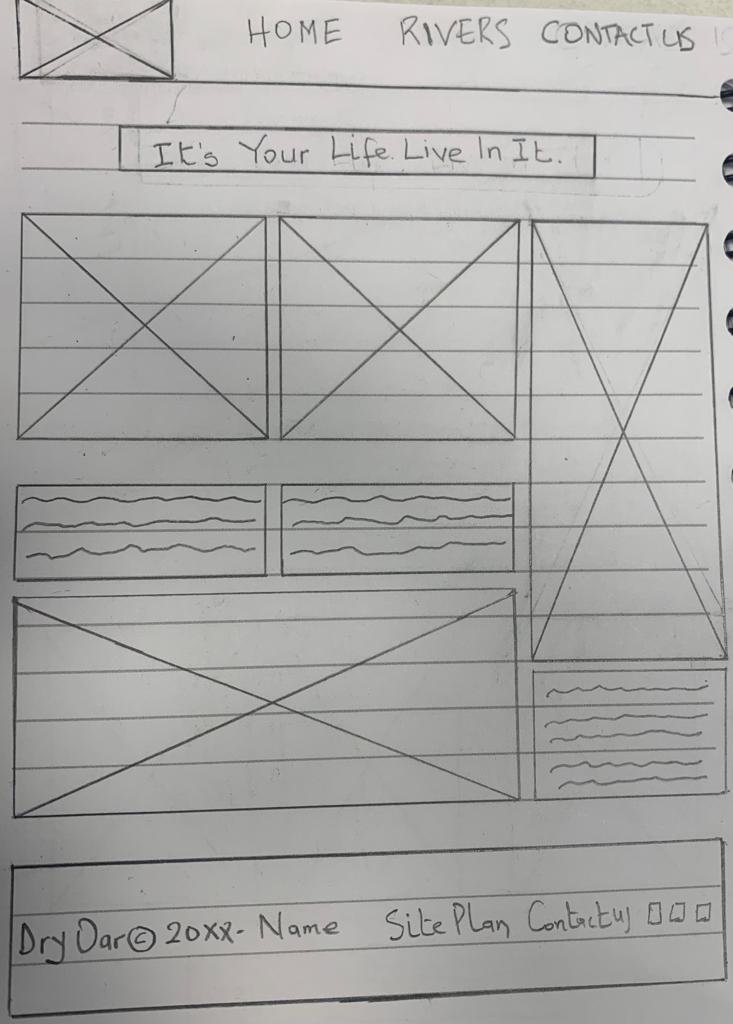 HOME RIVERS CONTACT US
It's Your Life. Live In It.
Dry Oar © 20XX- Name Site Plan Contact us